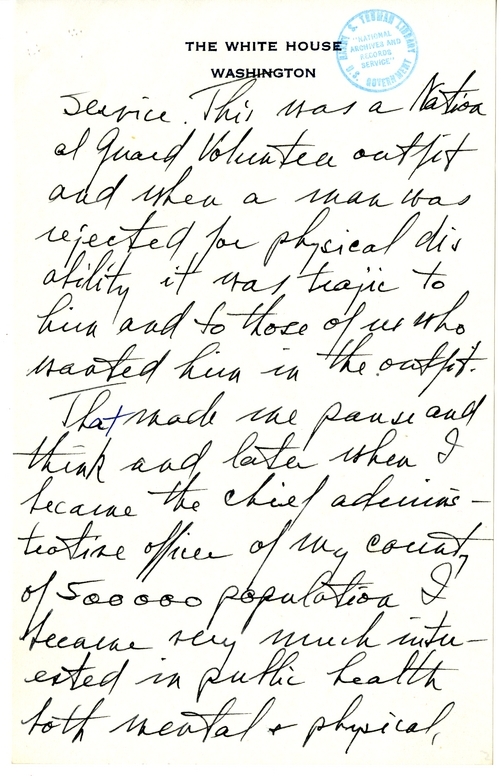 THE WHITE HOUSE
WASHINGTON
HARRY S. TRUMAN LIBRARY
"NATIONAL
ARCHIVES AND
RECORDS
SERVICE"
U. S. GOVERNMENT
service. This was a Nation
al Guard Volunteer outfit
and when a man was
rejected for physical dis
ability it was trajic to
him and to those of us who
wanted him in the outfit.
That made me pause and
think and later when I
became the chief adminis-
trative officer of my county
of 500000 population I
became very much inter-
ested in public health
both mental & physical,